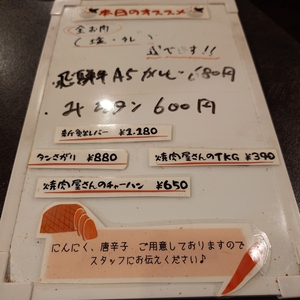 本日のオススメ
全お肉
(塩・タレ)
です!!
飛騨牛A5カルビ 680円
みそタン 600円
新ます¥1.280
タンさがり ¥880
焼肉屋さんのTKG ¥390
焼肉屋さんのチャーハン ¥650
にんにく、唐辛子 ご用意しておりますので
スタッフにお伝えください♪